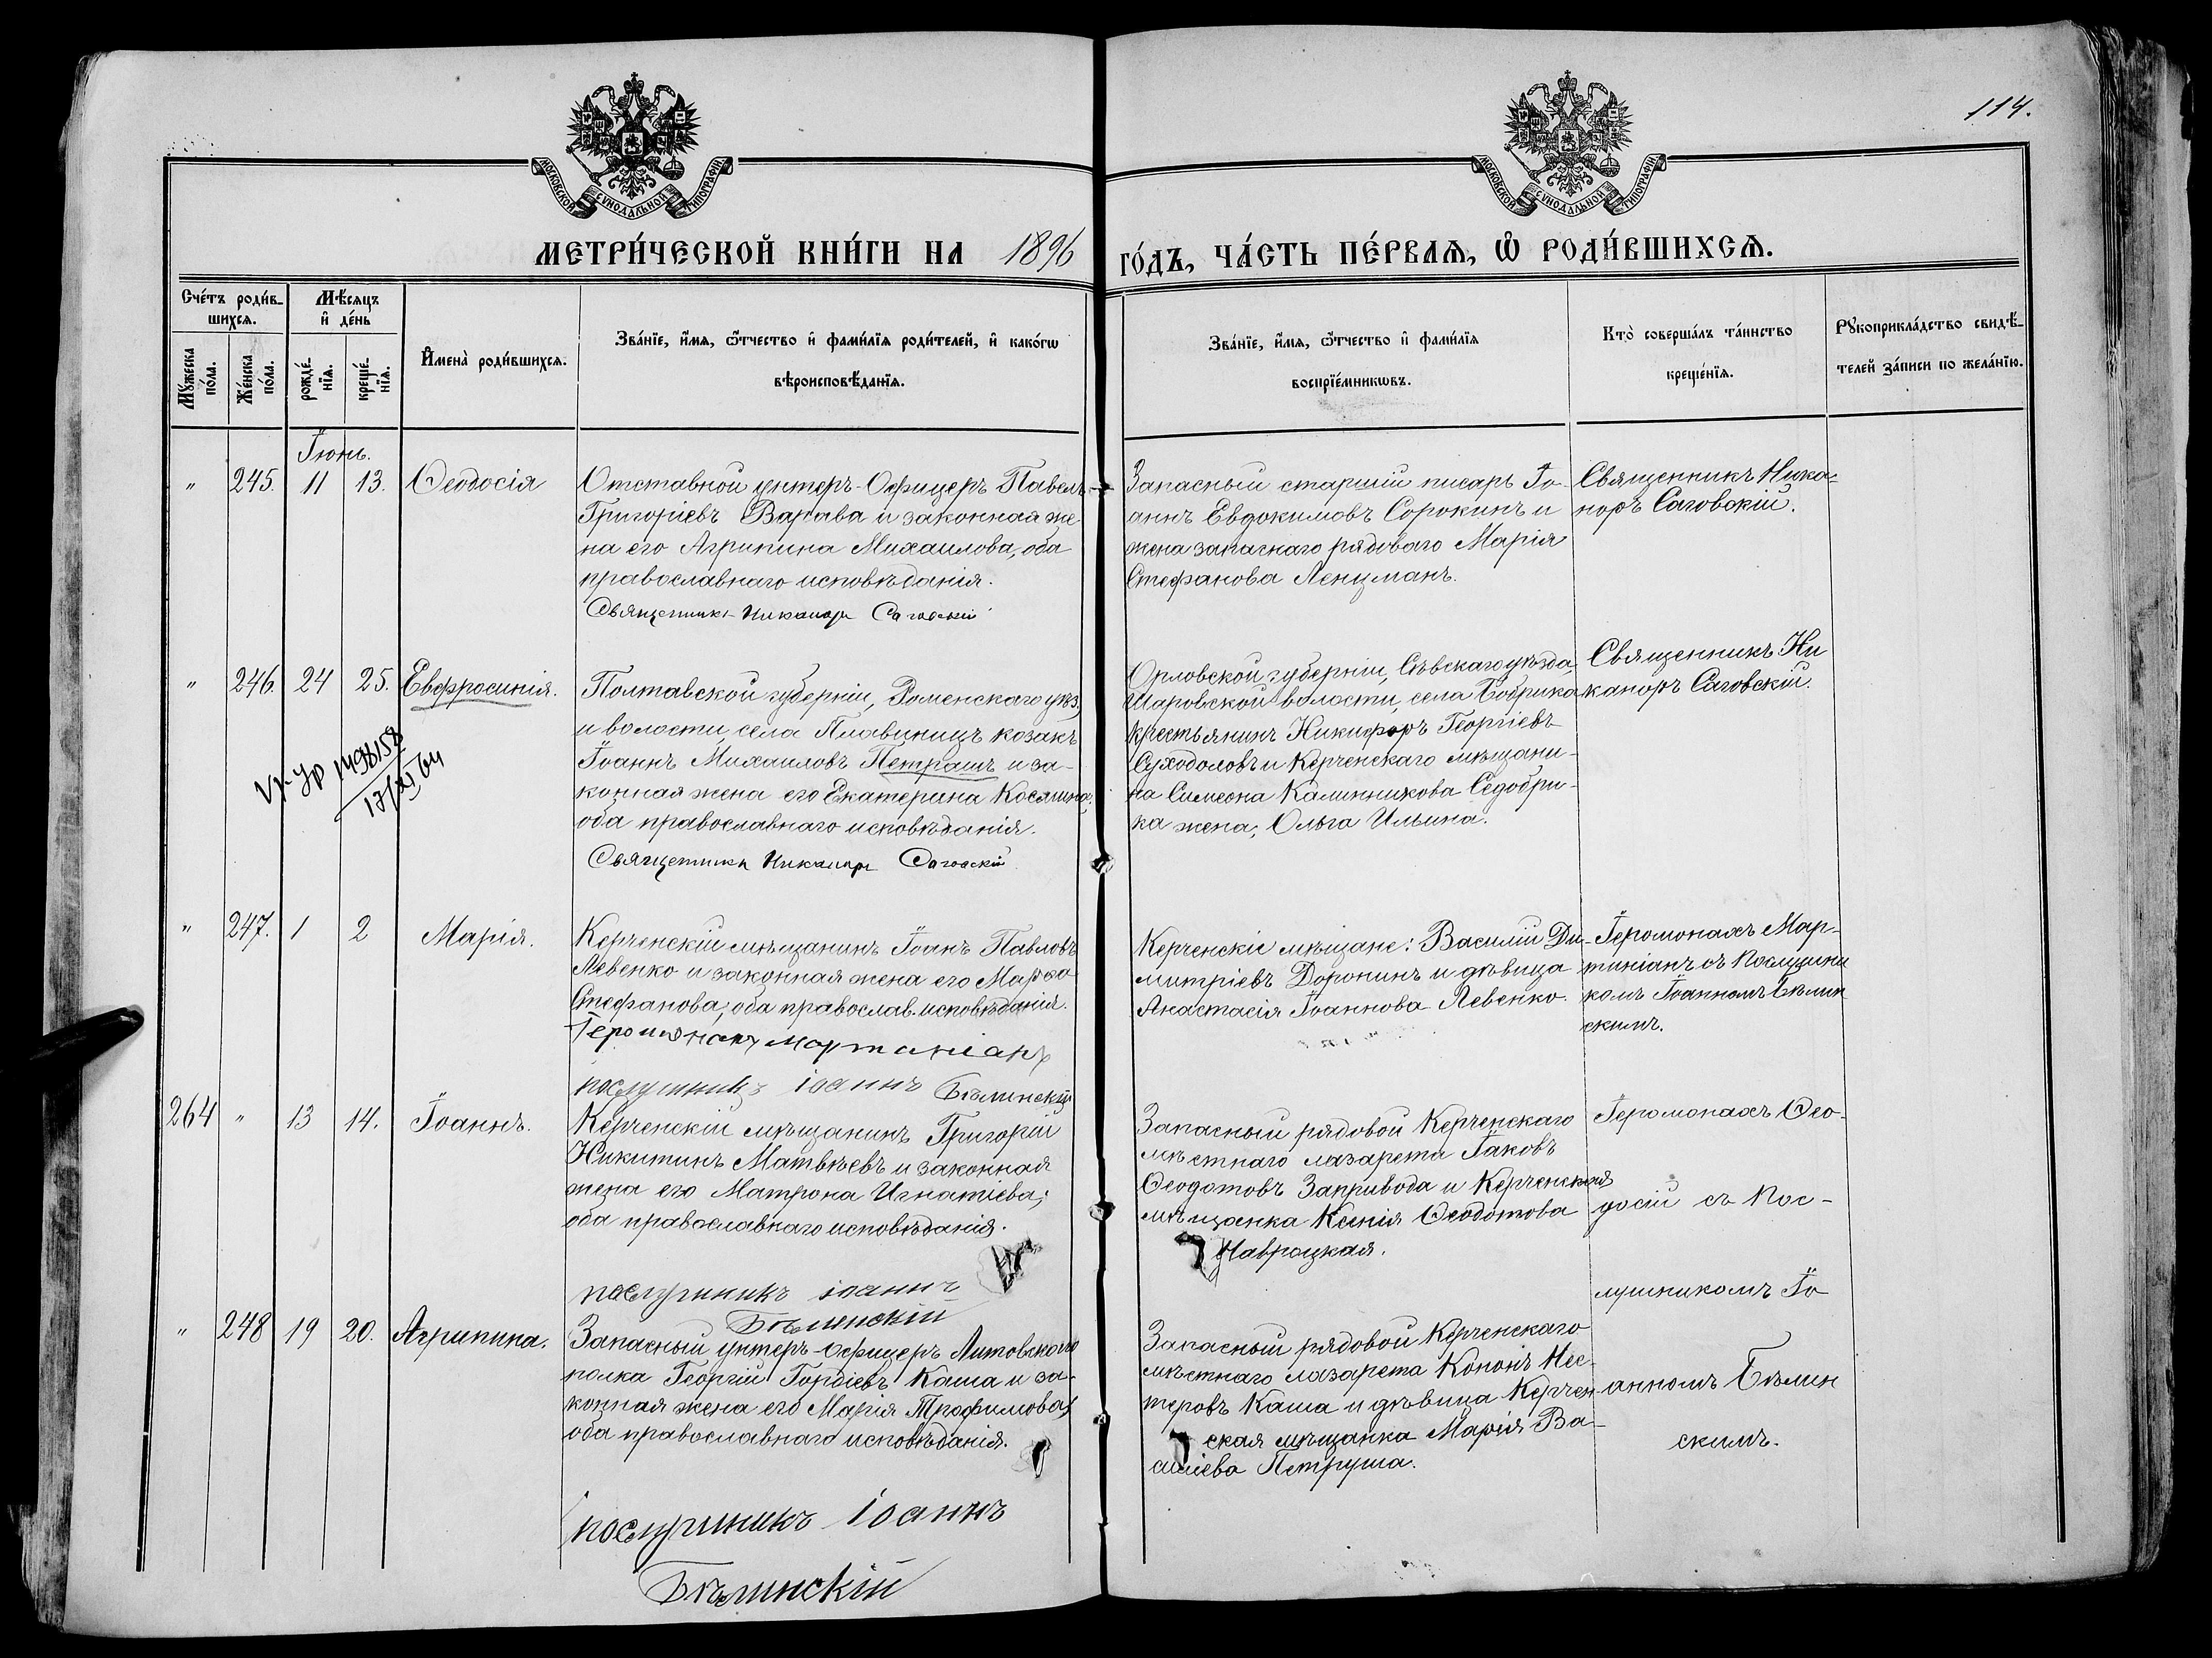 114.
МОСКОВСКОЙ СѴНОДАЛЬНОЙ ТИПОГРАФІИ
МОСКОВСКОЙ СѴНОДАЛЬНОЙ ТИПОГРАФІИ
МЕТРИ́ЧЕСКОЙ КНИ́ГИ НА 1896 ГО́ДЪ, ЧА́СТЬ ПЕ́РВАѦ, Ѡ РОДИ́ВШИХСѦ.
Сче́тъ роди́в-
шихсѧ.
Мꙋ́жеска по́ла.
Же́нска по́ла.
Мѣ́сѧцъ
и҆ де́нь
рожде́-
нїѧ.
креще́-
нїѧ.
И҆мена̀ роди́вшихсѧ.
Зва́нїе, и҆́мѧ, ѻ҆́тчество и҆ фами́лїѧ роди́телей, и҆ како́гѡ
вѣроисповѣ́данїѧ.
Зва́нїе, и҆́мѧ, ѻ҆́тчество и҆ фами́лїѧ
воспрїе́мникѡвъ.
Кто̀ соверша́лъ та́инство
креще́нїѧ.
Рꙋкоприкла́дство свидѣ́-
телей за́писи по жела́нїю.
Іюнь.
" 245. 11 13. Ѳеодосія
Отставной унтеръ-Офицеръ Павелъ
Григоріевъ Варава и законная же-
на его Агрипина Михаилова, оба
православнаго исповѣданія.
Священникъ Никаноръ Саговскій
Запасный старшій писарь Іо-
аннъ Евдокимовъ Сорокинъ и
жена запаснаго рядоваго Марія
Стефанова Ленцманъ.
Священникъ Ника-
норъ Саговскій.
" 246. 24 25. Евфросинія.
Полтавской губерніи, Роменскаго уѣз.
и волости, села Плавиницъ козакъ
Іоаннъ Михаиловъ Петрашъ и за-
конная жена его Екатерина Космина,
оба православнаго исповѣданія.
Священникъ Никаноръ Саговскій
17/XI 64
Орловской губерніи, Сѣвскаго уѣзда,
Шаровской волости, села Бобрика
крестьянинъ Никифоръ Георгіевъ
Суходоловъ и Керченскаго мѣщани-
на Симеона Калинникова Седобри-
ка жена, Ольга Ильина.
Священникъ Ни
каноръ Саговскій.
" 247. 1 2 Марія.
Керченскій мѣщанинъ Іоанъ Павловъ
Левенко и законная жена его Марѳа
Стефанова, оба православ. исповѣданія.
Іеромонахъ Мартиніанъ
послушникъ Іоаннъ Бѣлинскій
Керченскіе мѣщане: Василій Ди-
митріевъ Доронинъ и дѣвица
Анастасія Іоаннова Левенко.
Іеромонахъ Мар-
тиніанъ съ послушни
комъ Іоанномъ Бѣлин
скимъ.
264 " 13 14. Іоаннъ.
Керченскій мѣщанинъ Григорій
Никитинъ Матвѣевъ и законная
жена его Матрона Игнатіева,
оба православнаго исповѣданія.
послушникъ Іоаннъ
Бѣлинскій
Запасный рядовой Керченскаго
мѣстнаго лазарета Іаковъ
Ѳеодотовъ Запривода и Керченская
мѣщанка Ксенія Ѳеодотова
Навроцкая.
Іеромонахъ Ѳео-
досій съ пос-
лушникомъ Іо
анномъ Бѣлин
скимъ.
" 248 19 20. Агрипина.
Запасный унтеръ-офицеръ Литовскаго
полка Георгій Гордіевъ Каша и за-
конная жена его Марія Трофимова,
оба православнаго исповѣданія.
послушникъ Іоаннъ
Бѣлинскій
Запасный рядовой Керченскаго
мѣстнаго лазарета Кононъ Нес-
теровъ Каша и дѣвица Керчен-
ская мѣщанка Марія Ва-
силіева Петруша.